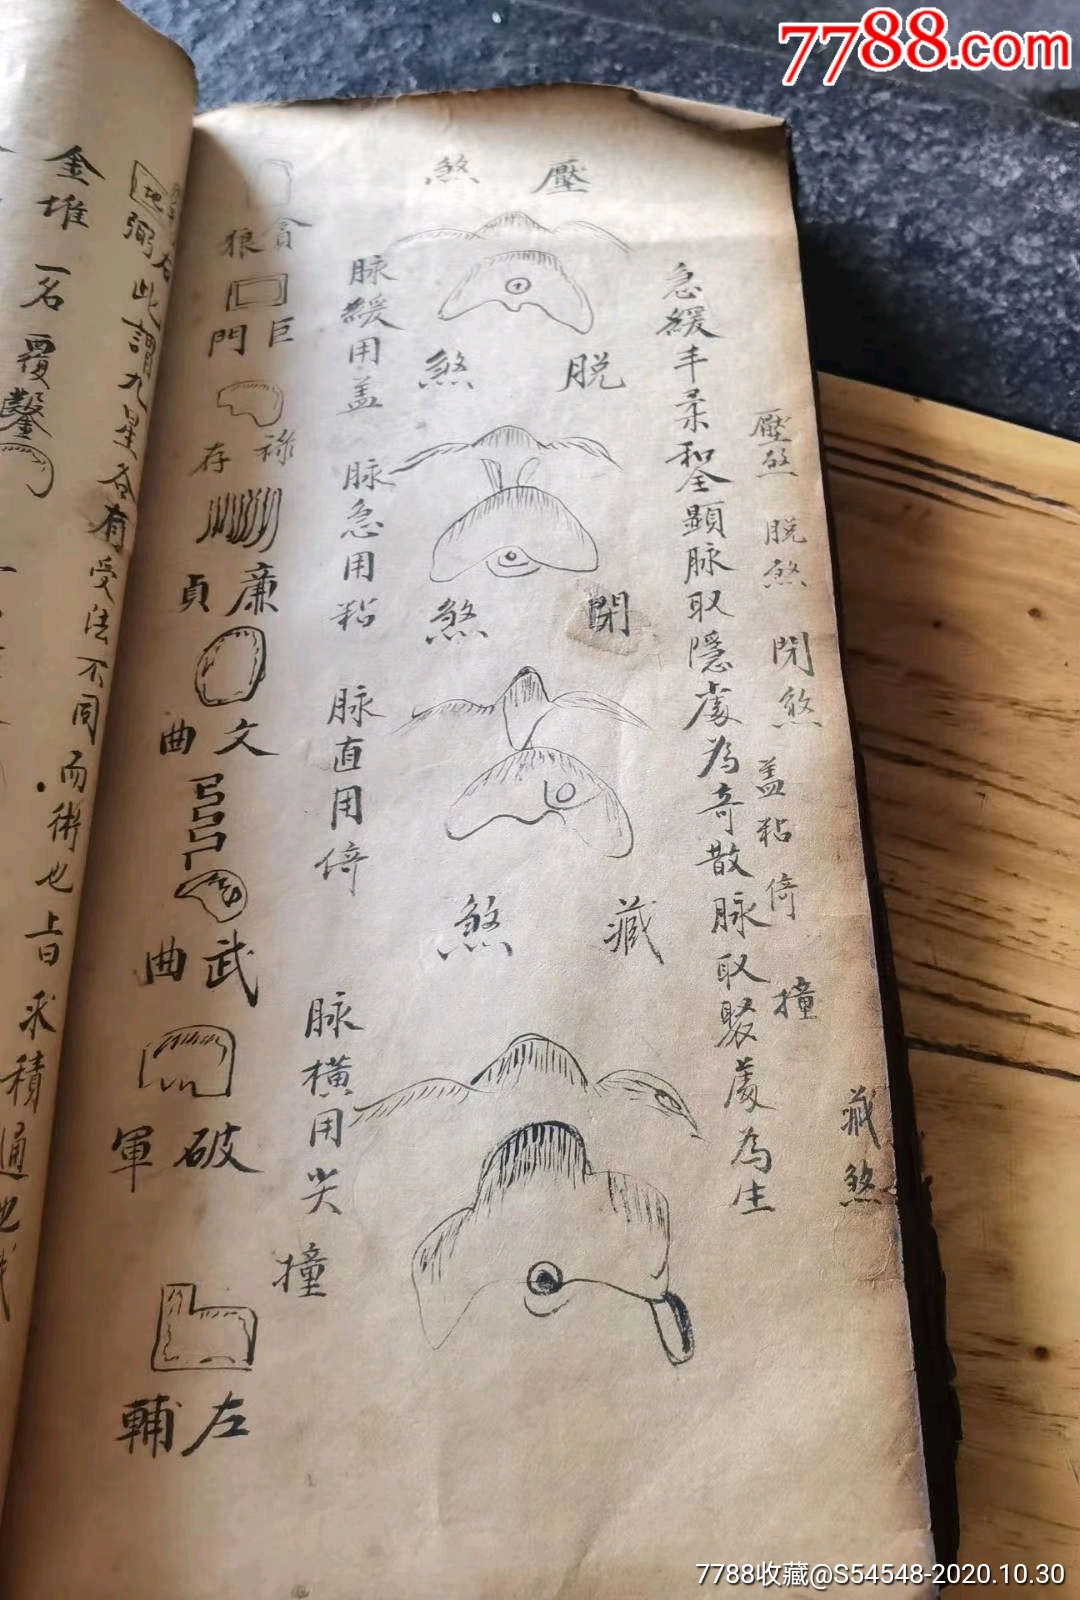 7788.com
壓煞
脫煞
閉煞
盖粘倚
撞
藏煞
急緩丰柔和全顯脉取隱處為奇散脉取聚處為生
壓煞
脫煞
閉煞
藏煞
脉緩用盖
脉急用粘
脉直用倚
脉橫用尖撞
貪狼
巨門
祿存
廉貞
文曲
武曲
破軍
左輔
右弼此謂九星各有受法不同而術也
金堆一名覆鑿
7788收藏@S54548-2020.10.30